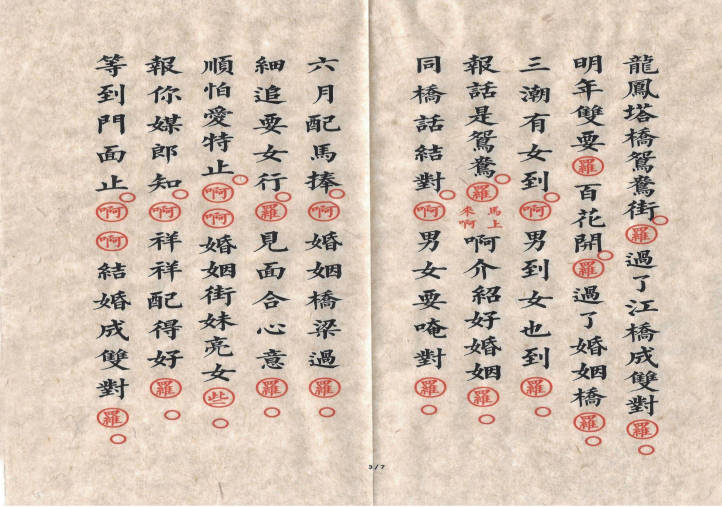 龍鳳塔橋鴛鴦街。羅過了江橋成雙對羅。
明年雙要羅百花開。羅過了婚姻橋羅。
三潮有女到。啊男到女也到羅。
報話是鴛鴦。羅馬上來啊啊介紹好婚姻羅。
同橋話結對。啊男女要唵對羅。
六月配馬捧。啊婚姻橋梁過羅。
細追要女行。羅見面合心意羅。
順怕愛特止。啊啊婚姻街妹亮女些。
報你媒郎知。啊祥祥配得好羅。
等到門面止。啊啊結婚成雙對羅。
3/7